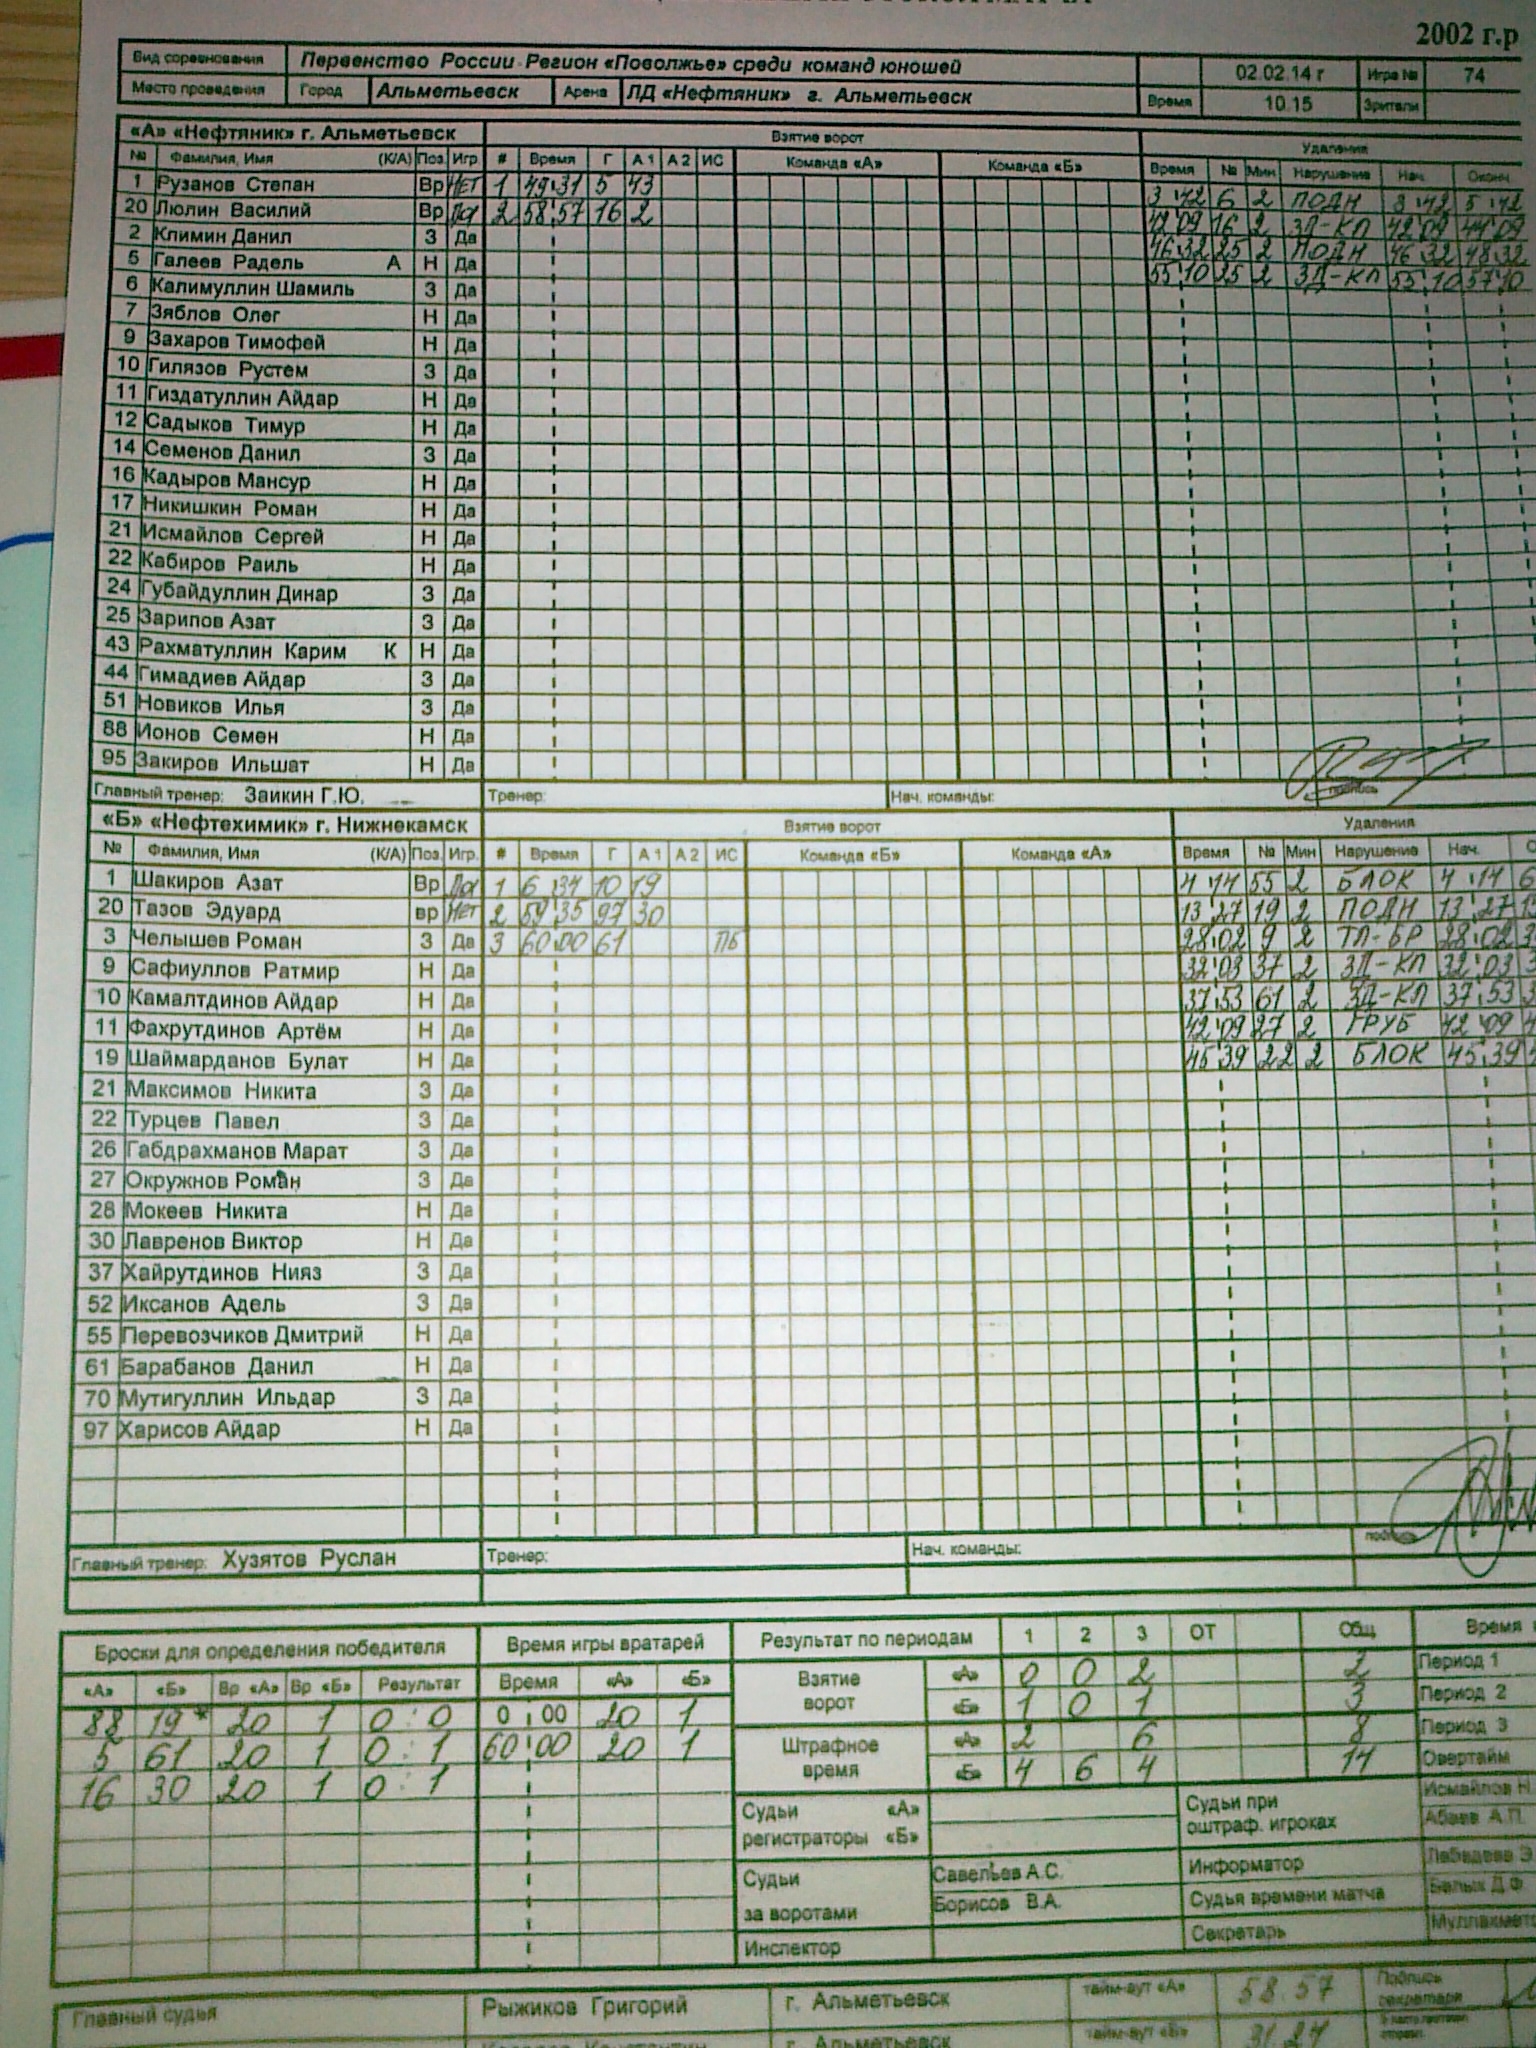 2002 г.р
Вид соревнования Первенство России Регион «Поволжье» среди команд юношей 02.02.14 г Игра № 74
Место проведения Город Альметьевск Арена ЛД «Нефтяник» г. Альметьевск Время 10.15 Зрители
«А» «Нефтяник» г. Альметьевск Взятие ворот Удаления
№ Фамилия, Имя (К/А) Поз. Игр. # Время Г А 1 А 2 ИС Команда «А» Команда «Б» Время № Мин Нарушение Нач. Оконч.
1 Рузанов Степан Вр Нет 1 49 31 5 43 3 42 6 2 ПОДН 3 42 5 42
20 Люлин Василий Вр Да 2 58 57 16 2 42 09 16 2 ЗД-КЛ 42 09 44 09
2 Климин Данил З Да 46 32 25 2 ПОДН 46 32 48 32
5 Галеев Радель А Н Да 55 10 25 2 ЗД-КЛ 55 10 57 10
6 Калимуллин Шамиль З Да
7 Зяблов Олег Н Да
9 Захаров Тимофей Н Да
10 Гилязов Рустем З Да
11 Гиздатуллин Айдар Н Да
12 Садыков Тимур Н Да
14 Семенов Данил З Да
16 Кадыров Мансур Н Да
17 Никишкин Роман Н Да
21 Исмайлов Сергей Н Да
22 Кабиров Раиль Н Да
24 Губайдуллин Динар З Да
25 Зарипов Азат З Да
43 Рахматуллин Карим К Н Да
44 Гимадиев Айдар З Да
51 Новиков Илья З Да
88 Ионов Семен Н Да
95 Закиров Ильшат Н Да
Главный тренер: Заикин Г.Ю. Тренер: Нач. команды: подпись
«Б» «Нефтехимик» г. Нижнекамск Взятие ворот Удаления
№ Фамилия, Имя (К/А) Поз. Игр. # Время Г А 1 А 2 ИС Команда «Б» Команда «А» Время № Мин Нарушение Нач.
1 Шакиров Азат Вр Да 1 6 34 10 19 4 14 55 2 БЛОК 4 14 6
20 Тазов Эдуард вр Нет 2 59 35 97 30 13 27 19 2 ПОДН 13 27
3 Челышев Роман З Да 3 60 00 61 ПБ 28 02 9 2 ТЛ-БР 28 02
9 Сафиуллов Ратмир Н Да 32 03 37 2 ЗД-КЛ 32 03
10 Камалтдинов Айдар Н Да 37 53 61 2 ЗД-КЛ 37 53
11 Фахрутдинов Артём Н Да 42 09 27 2 ГРУБ 42 09
19 Шаймарданов Булат Н Да 45 39 22 2 БЛОК 45 39
21 Максимов Никита З Да
22 Турцев Павел З Да
26 Габдрахманов Марат З Да
27 Окружнов Роман З Да
28 Мокеев Никита Н Да
30 Лавренов Виктор Н Да
37 Хайрутдинов Нияз З Да
52 Иксанов Адель З Да
55 Перевозчиков Дмитрий Н Да
61 Барабанов Данил Н Да
70 Мутигуллин Ильдар З Да
97 Харисов Айдар Н Да
Главный тренер: Хузятов Руслан Тренер: Нач. команды: подпись
Броски для определения победителя Время игры вратарей Результат по периодам 1 2 3 ОТ Общ. Время
«А» «Б» Вр «А» Вр «Б» Результат Время «А» «Б» Взятие ворот «А» 0 0 2 2 Период 1
88 19* 20 1 0 : 0 0 00 20 1 «Б» 1 0 1 3 Период 2
5 61 20 1 0 : 1 60 00 20 1 Штрафное время «А» 2 6 8 Период 3
16 30 20 1 0 : 1 «Б» 4 6 4 14 Овертайм
Судьи регистраторы «А» «Б» Судьи при оштраф. игроках Исмайлов Н.
Абаев А.П.
Судьи за воротами Савельев А.С. Информатор Лебедева Э.
Борисов В.А. Судья времени матча Белых Д.Ф.
Инспектор Секретарь
Главный судья Рыжиков Григорий г. Альметьевск тайм-аут «А» 58.57 Подпись секретаря
г. Альметьевск тайм-аут «Б» 31.24